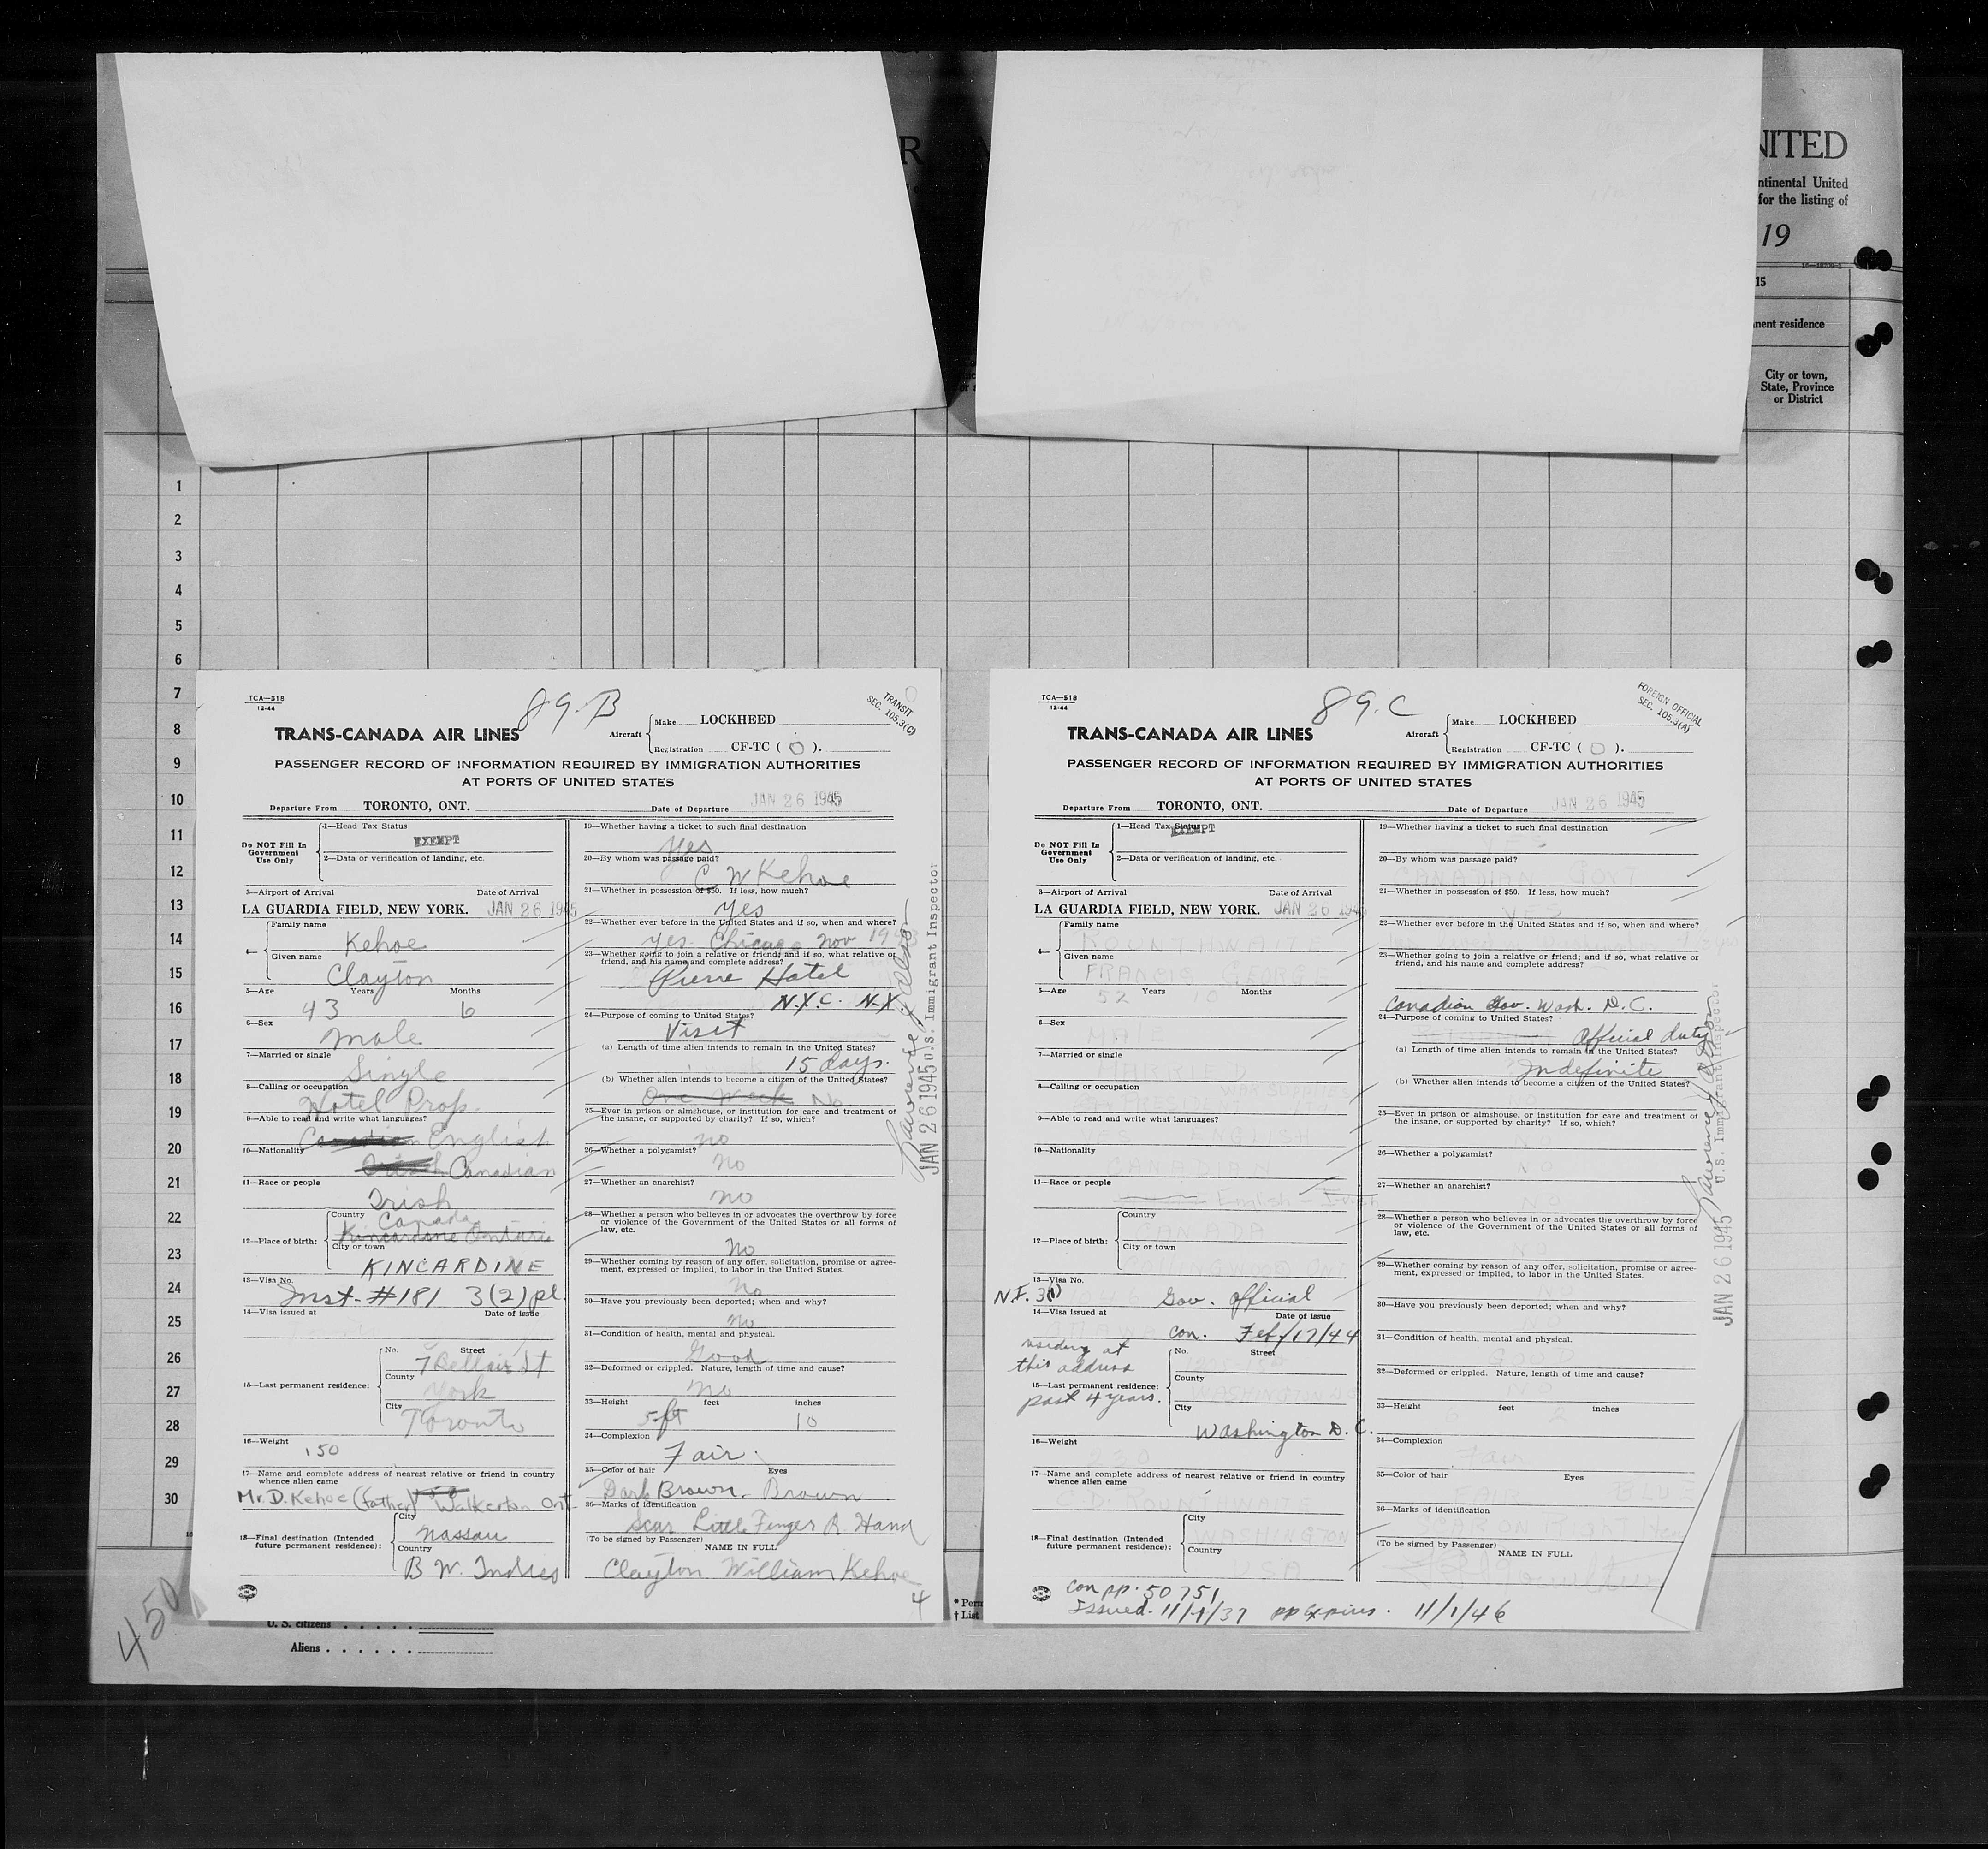 R
UNITED
ntinental United
for the listing of
19
15
nent residence
City or town,
State, Province
or District
1
2
3
4
5
6
7
8
9
10
11
12
13
14
15
16
17
18
19
20
21
22
23
24
25
26
27
28
29
30
TCA—518
12-44
89.B
TRANSIT
SEC. 105.3(C)
TRANS-CANADA AIR LINES
Aircraft
Make LOCKHEED
Registration CF-TC ( O ).
PASSENGER RECORD OF INFORMATION REQUIRED BY IMMIGRATION AUTHORITIES
AT PORTS OF UNITED STATES
Departure From TORONTO, ONT. Date of Departure JAN 26 1945
Do NOT Fill In
Government
Use Only
1—Head Tax Status
EXEMPT
2—Data or verification of landing, etc.
3—Airport of Arrival Date of Arrival
LA GUARDIA FIELD, NEW YORK. JAN 26 1945
4—
Family name
Kehoe
Given name
Clayton
5—Age Years Months
43 6
6—Sex
Male
7—Married or single
Single
8—Calling or occupation
Hotel Prop.
9—Able to read and write what languages?
Canadian English
10—Nationality
Irish Canadian
11—Race or people
Irish
12—Place of birth:
Country
Canada
Kincardine Ontario
City or town
KINCARDINE
13—Visa No.
Inst-#181 3(2) pl.
14—Visa issued at Date of issue
15—Last permanent residence:
No. Street
7 Bellair St
County
York
City
Toronto
16—Weight
150
17—Name and complete address of nearest relative or friend in country
whence alien came
Mr. D. Kehoe (father) Walkerton Ont
18—Final destination (Intended
future permanent residence):
City
Nassau
Country
B W. Indies
19—Whether having a ticket to such final destination
Yes
20—By whom was passage paid?
C W Kehoe
21—Whether in possession of $50. If less, how much?
Yes
22—Whether ever before in the United States and if so, when and where?
Yes. Chicago Nov
23—Whether going to join a relative or friend; and if so, what relative or
friend, and his name and complete address?
Pierre Hotel
N.Y.C. N.Y
24—Purpose of coming to United States?
Visit
(a) Length of time alien intends to remain in the United States?
15 days.
(b) Whether alien intends to become a citizen of the United States?
One Week No
25—Ever in prison or almshouse, or institution for care and treatment of
the insane, or supported by charity? If so, which?
no
26—Whether a polygamist?
no
27—Whether an anarchist?
no
28—Whether a person who believes in or advocates the overthrow by force
or violence of the Government of the United States or all forms of
law, etc.
no
29—Whether coming by reason of any offer, solicitation, promise or agree-
ment, expressed or implied, to labor in the United States.
no
30—Have you previously been deported; when and why?
no
31—Condition of health, mental and physical.
Good
32—Deformed or crippled. Nature, length of time and cause?
no
33—Height feet inches
5 ft 10
34—Complexion
Fair.
35—Color of hair Eyes
Dark Brown. Brown
36—Marks of identification
Scar Little Finger R. Hand
(To be signed by Passenger)
NAME IN FULL
Clayton William Kehoe
4
JAN 26 1945 U.S. Immigrant Inspector
TCA—518
12-44
89.C
FOREIGN OFFICIAL
SEC. 105.3(A)
TRANS-CANADA AIR LINES
Aircraft
Make LOCKHEED
Registration CF-TC ( O ).
PASSENGER RECORD OF INFORMATION REQUIRED BY IMMIGRATION AUTHORITIES
AT PORTS OF UNITED STATES
Departure From TORONTO, ONT. Date of Departure JAN 26 1945
Do NOT Fill In
Government
Use Only
1—Head Tax Status
EXEMPT
2—Data or verification of landing, etc.
3—Airport of Arrival Date of Arrival
LA GUARDIA FIELD, NEW YORK. JAN 26 1945
4—
Family name
Given name
FRANCIS GEORGE
5—Age Years Months
52 10
6—Sex
MALE
7—Married or single
MARRIED
8—Calling or occupation
9—Able to read and write what languages?
ENGLISH
10—Nationality
CANADIAN
11—Race or people
English - Irish
12—Place of birth:
Country
CANADA
City or town
13—Visa No.
N.I. 3(1) Gov. official
14—Visa issued at Date of issue
Can. Feb/17/44
residing at
this address
past 4 years.
15—Last permanent residence:
No. Street
County
WASHINGTON
City
Washington D.C.
16—Weight
230
17—Name and complete address of nearest relative or friend in country
whence alien came
18—Final destination (Intended
future permanent residence):
City
WASHINGTON
Country
USA
19—Whether having a ticket to such final destination
YES
20—By whom was passage paid?
CANADIAN GOVT
21—Whether in possession of $50. If less, how much?
YES
22—Whether ever before in the United States and if so, when and where?
23—Whether going to join a relative or friend; and if so, what relative or
friend, and his name and complete address?
Canadian Gov. Wash. D.C.
24—Purpose of coming to United States?
Official duty
(a) Length of time alien intends to remain in the United States?
Indefinite
(b) Whether alien intends to become a citizen of the United States?
25—Ever in prison or almshouse, or institution for care and treatment of
the insane, or supported by charity? If so, which?
26—Whether a polygamist?
NO
27—Whether an anarchist?
NO
28—Whether a person who believes in or advocates the overthrow by force
or violence of the Government of the United States or all forms of
law, etc.
NO
29—Whether coming by reason of any offer, solicitation, promise or agree-
ment, expressed or implied, to labor in the United States.
30—Have you previously been deported; when and why?
31—Condition of health, mental and physical.
GOOD
32—Deformed or crippled. Nature, length of time and cause?
NO
33—Height feet inches
6 2
34—Complexion
Fair
35—Color of hair Eyes
BLUE
36—Marks of identification
(To be signed by Passenger)
NAME IN FULL
Can pp. 50751
Issued. 11/1/37 pp Expires. 11/1/46
JAN 26 1945 U.S. Immigrant Inspector
450
U.S. citizens
Aliens
* Perm
† List